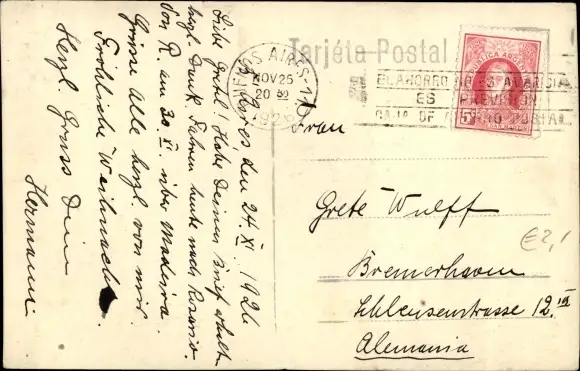 Tarjéta Postal
BUENOS AIRES
NOV 25
20
1926
EL AHORRO NO ES AVARICIA
ES PREVISION
CAJA DE AHORRO POSTAL
REPUBLICA ARGENTINA
5
B. Aires, den 24.XI.1926
Liebe Gretel! Habe Deinen Brief erhalt.
herzl. Dank. Fahren heute nach Rosario.
Von R. am 30.XI. über Madeira.
Grüsse Alle herzl. von mir
Fröhliche Weihnacht
Herzl. Gruss Dein
Hermann
Frau
Grete Wulff
Bremerhaven
Schleusenstrasse 12 III
Alemania
€2,-